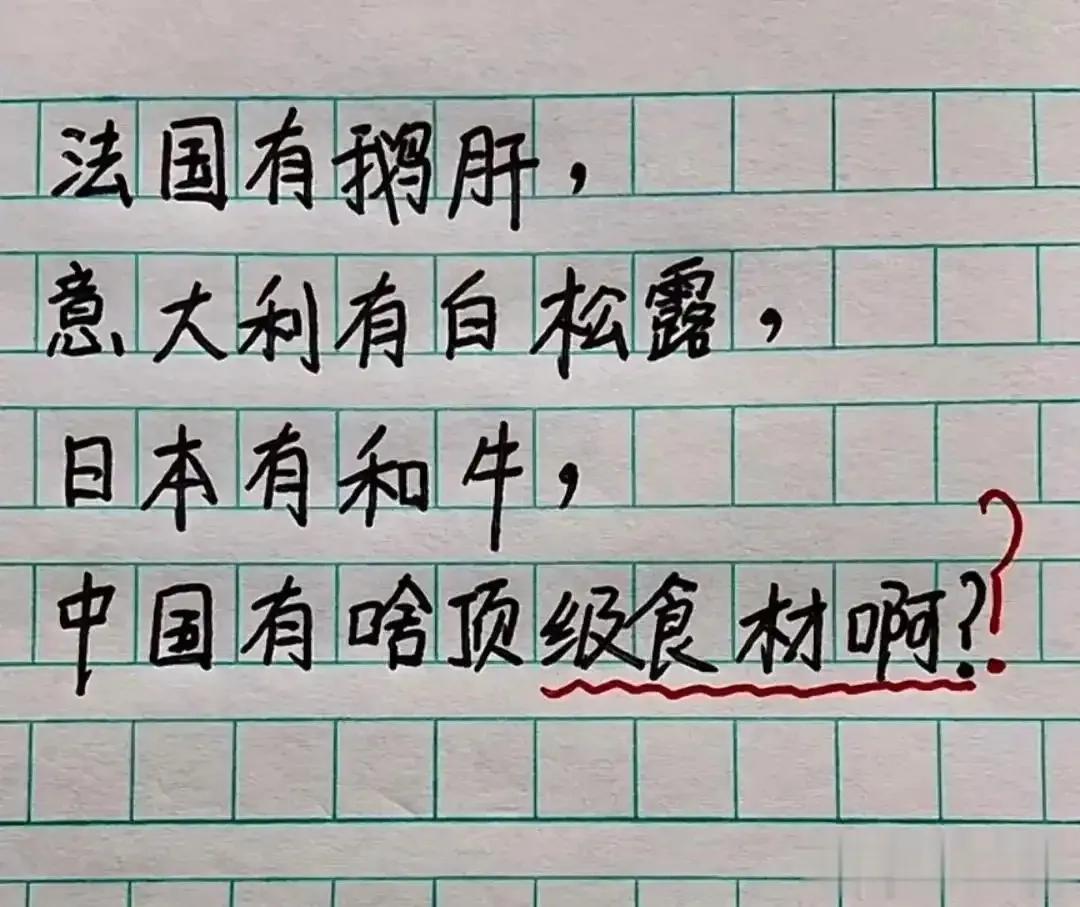 法国有鹅肝，
意大利有白松露，
日本有和牛，
中国有啥顶级食材啊？？